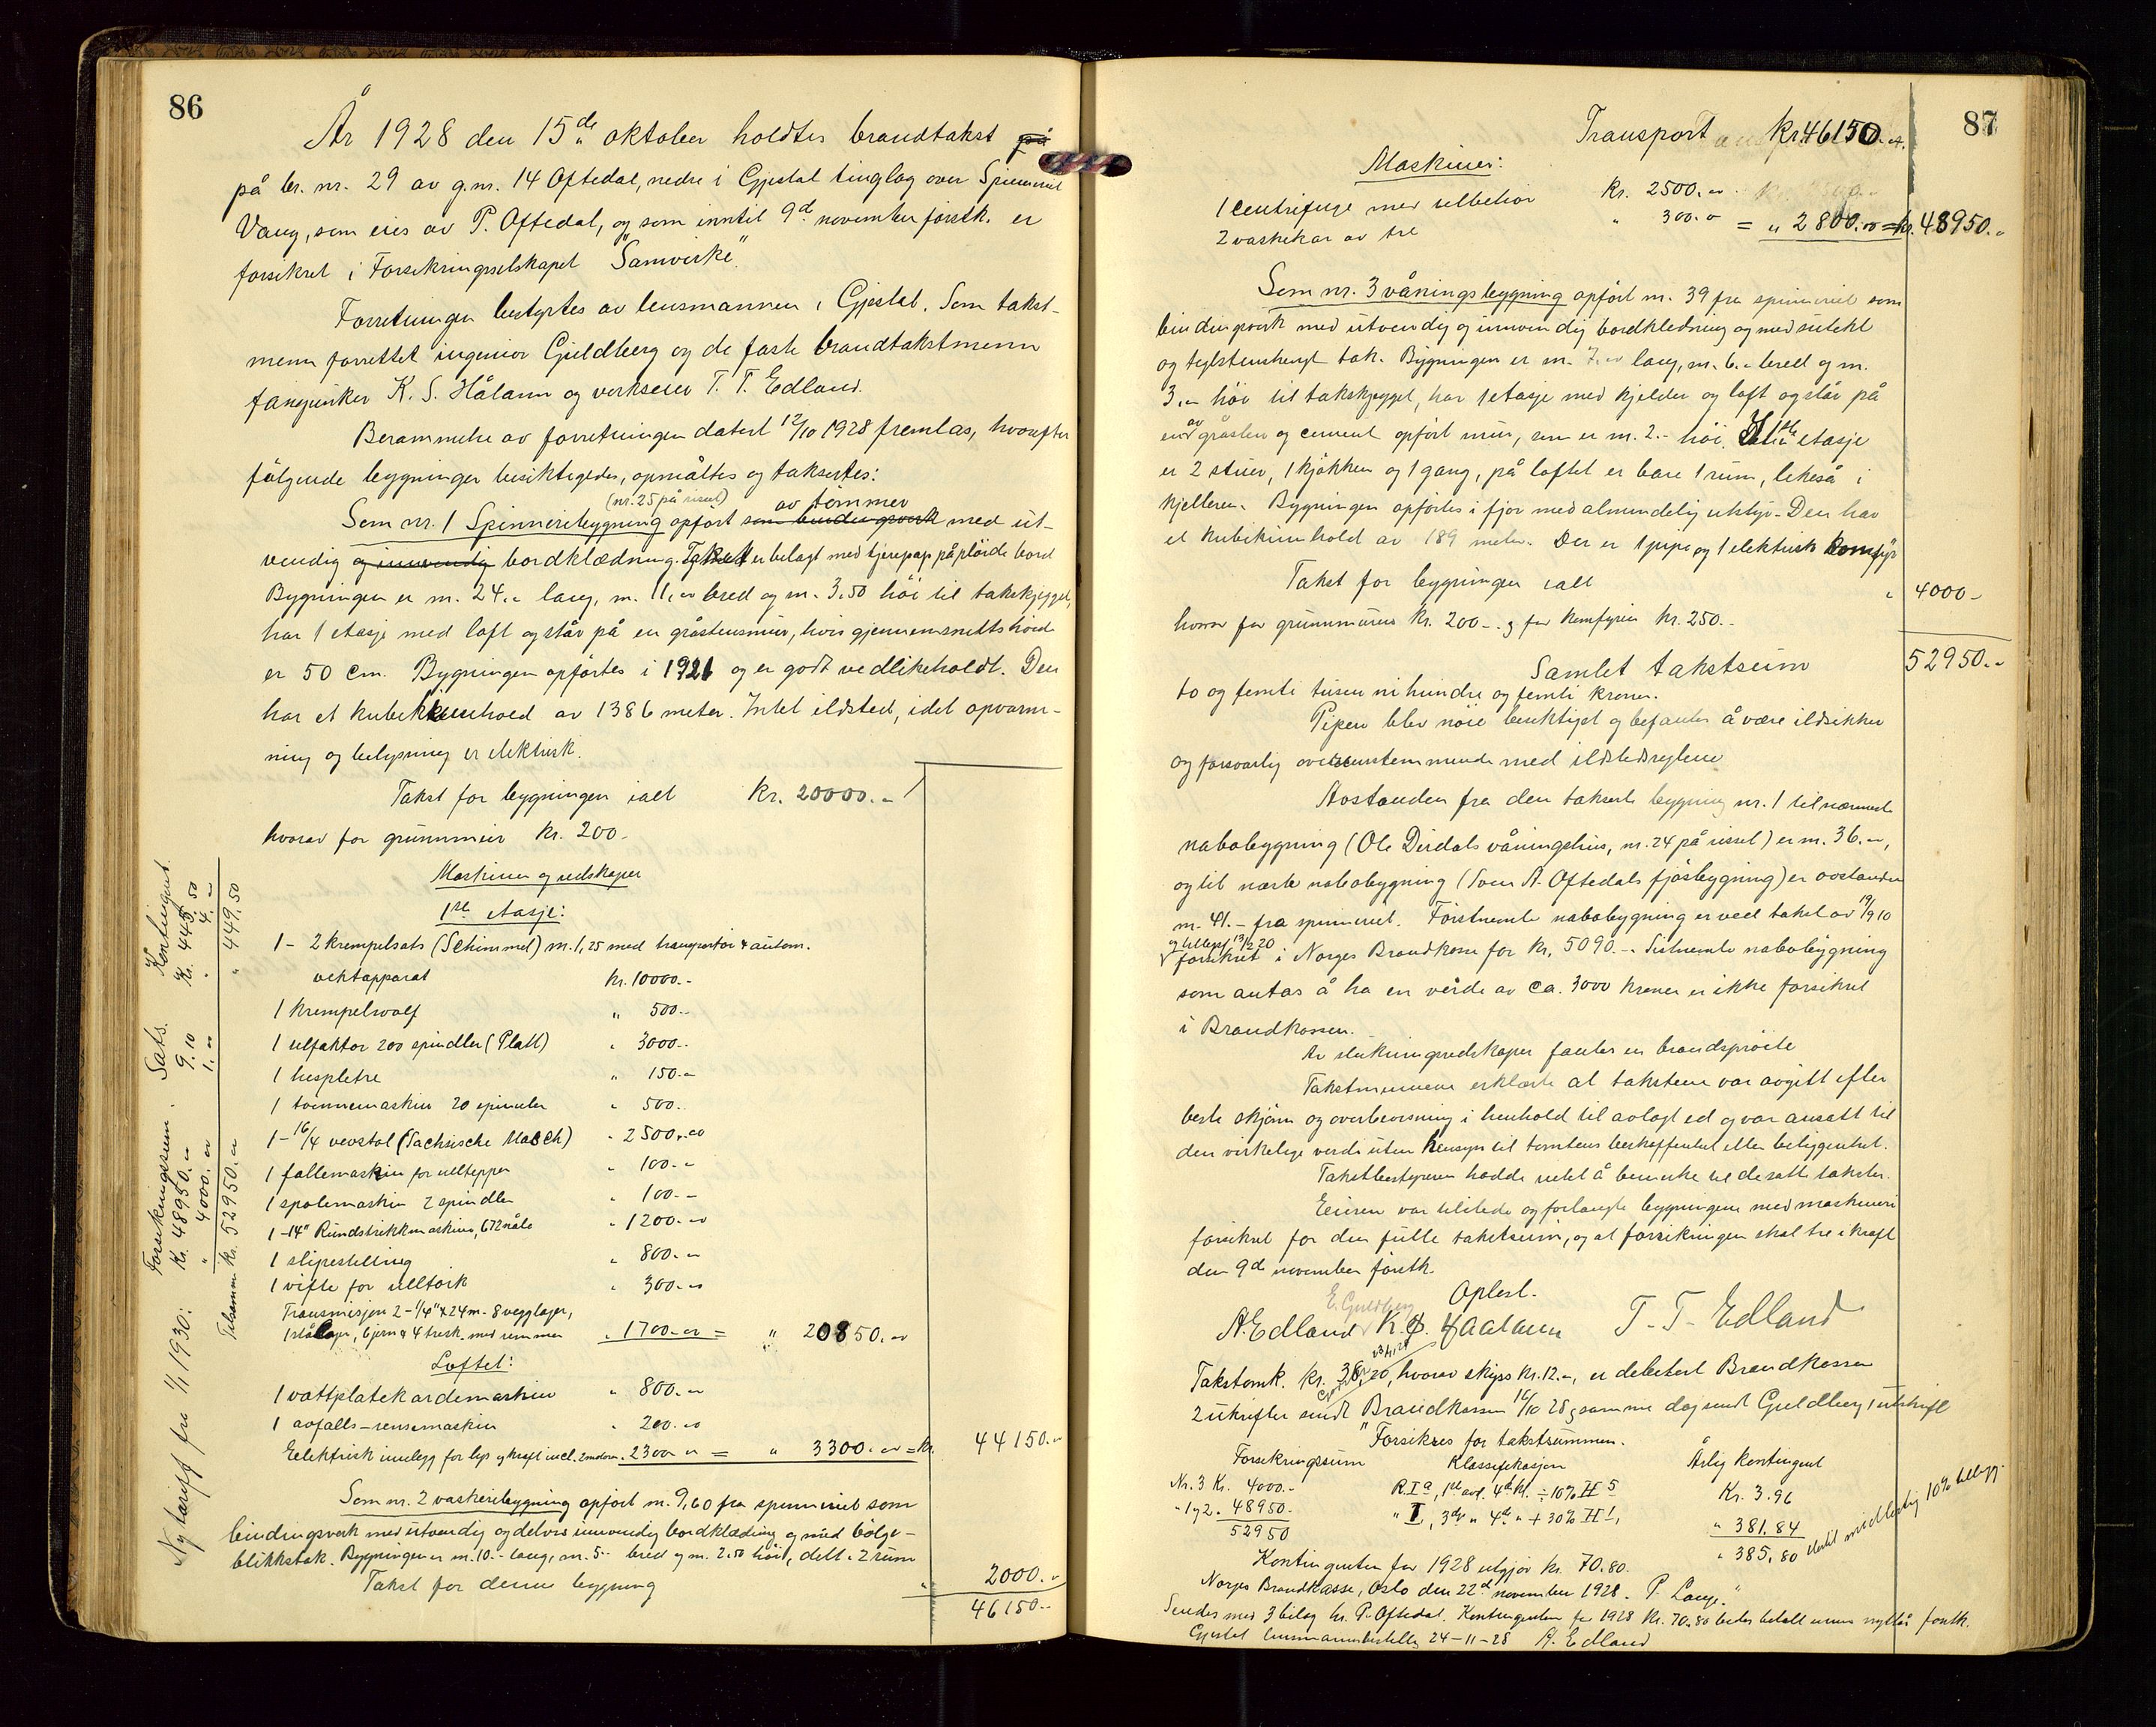 86
År 1928 den 15de oktober holdtes brandtakst på
på br. nr. 29 av g.nr. 14 Oftedal, nedre i Gjestal tinglag over Spinneriet
Vang, som eies av P. Oftedal, og som inntil 9de november förstk. er
forsikret i Forsikringsselskapet "Samvirke".
Forretningen bestyrtes av lensmannen i Gjestal. Som takst-
menn forrettet ingeniör Guldberg og de faste brandtakstmenn
fanejunker K. S. Hålann og verkseier T. T. Edland.
Berammelse av forretningen datert 12/10 1928 fremlas, hvorefter
fölgende bygninger besiktigedes, opmåltes og taksertes:
(nr. 25 på risset) av tömmer
Som nr. 1 Spinneribygning opfört som bindingsverk med ut-
vendig og innvendig bordklædning. Taket er belagt med tjærepap på plöide bord
Bygningen er m. 24.- lang, m. 11,00 bred og m. 3.50 höi til takskjegget,
har 1 etasje med loft og står på en gråstensmur, hvis gjennemsnittshöide
er 50 cm. Bygningen opförtes i 1921 og er godt vedlikeholdt. Den
har et kubikkinnhold av 1386 meter. Intet ildsted, idet opvarm-
ning og belysning er elektrisk.
Takst for bygningen ialt kr. 20000.-
hvorav for grunnmur kr. 200.-
Maskiner og redskaper
1ste etasje:
1 - 2 krempelsats (Schimmel) m. 1,25 med transportör & autom.
vektapparat kr. 10000.-
1 krempelwolf " 500.-
1 selfaktor 200 spindler (Platt) " 3000.-
1 hespletre " 150.-
1 tvinnemaskin 20 spindler " 500.-
1 - 16/4 vevstol (Sachsische Masch) " 2500.00
1 fallemaskin for ulltepper " 100.-
1 spolemaskin 2 spindler " 100.-
1 - 14" Rundstrikkmaskin, 672 nåle " 1200.00
1 slipestilling " 800.-
1 vifte for ulltörk " 300.00
Transmisjon 2-1/4" x 24 m. 8 vegglager,
1 stållager, 6 jern & 4 tresk. med remmer " 1700.00 = " 20850.00
Loftet:
1 vattplatekardemaskin " 800.-
1 avfalls-rensemaskin " 200.00
Elektrisk innlegg for lys og kraft incl. 2 motorer " 2300.- = " 3300.00 = kr. 44150.-
Som nr. 2 vaskeribygning opfört m. 9,60 fra spinneriet som
bindingsverk med utvendig og delvis innvendig bordklædning og med bölge-
blikkstak. Bygningen er m. 10.- lang, m. 5.- bred og m. 2.50 höi, delt i 2 rum
Takst for denne bygning " 2000.-
46150.-
Ny tariff fra 1/1 1930:
Forsikringssum. Sats. Kontingent.
Kr. 48950.- 9.10 Kr. 445.50
" 4000.00 1.00 " 4.-
Tilsamm. kr. 52950.00 " 449.50
87
Transport kr. 46150.-
Maskiner:
1 centrifuge med tilbehör kr. 2500.00
2 vaskekar av tre " 300.00 = " 2800.00 = kr. 48950.-
Som nr. 3 våningsbygning opfört m. 39 fra spinneriet som
bindingsverk med utvendig og innvendig bordkledning og med sutekt
og teglstenshengt tak. Bygningen er m. 7.00 lang, m. 6.- bred og m.
3.- höi til takskjegget, har 1 etasje med kjelder og loft og står på
en av gråsten og cement opfört mur, som er m. 2.- höi. I 1ste etasje
er 2 stuer, 1 kjökken og 1 gang, på loftet er bare 1 rum, likeså i
kjelleren. Bygningen opförtes i fjor med almindelig utstyr. Den har
et kubikinnhold av 189 meter. Der er 1 pipe og 1 elektrisk komfyr
Takst for bygningen ialt " 4000.-
hvorav for grunnmuren kr. 200.- og for komfyren kr. 250.-
Samlet takstsum 52950.-
to og femti tusen ni hundre og femti kroner.
Pipen blev nöie besiktiget og befantes å være ildsikker
og forsvarlig overensstemmende med ildstedsreglene
Avstanden fra den takserte bygning nr. 1 til nærmeste
nabobygning (Ole Dirdals våningshus, nr. 24 på risset) er m. 36.-,
og til næste nabobygning (Sven A. Oftedals fjösbygning) er avstanden
m. 41.- fra spinneriet. Förstnevnte nabobygning er ved takst av 19/9 10
og tilleggst. 13/2 20
forsikret i Norges Brandkasse for kr. 5090.-. Sistnevnte nabobygning
som antas å ha en verdi av ca. 3000 kroner er ikke forsikret
i Brandkassen.
Av slukningsredskaper fantes en brandspröite
Takstmennene erklærte at takstene var avgitt efter
beste skjönn og overbevisning i henhold til avlagt ed og var ansatt til
den virkelige verdi uten hensyn til tomtens beskaffenhet eller beliggenhet.
Takstbestyreren hadde intet å bemerke til de satte takster.
Eieren var tilstede og forlangte bygningene med maskineri
forsikret for den fulle takstsum, og at forsikringen skal tre i kraft
den 9de november förstk.
Oplest.
E. Guldberg
A. Edland K. S. Haalann T. T. Edland
Takstomk. kr. 38,20, hvorav skyss kr. 12.-, er debitert Brandkassen
2 utskrifter sendt Brandkassen 16/10 28, samme dag sendt Guldberg 1 utskrift
"Forsikres for takstsummen.
Forsikringssum Klassifikasjon Årlig kontingent
Nr. 3 Kr. 4000.- R. I a, 1ste avd. 4de kl. ÷ 10% H 5 Kr. 3.96
" 1 og 2 " 48950.- " I, 3dje " 4de " + 30% H 1, " 381.84
52950 " 385,80 hertil midlertidig 10% tillegg.
Kontingenten for 1928 utgjör kr. 70.80.
Norges Brandkasse, Oslo den 22de november 1928. P. Lange."
Sendes med 3 bilag hr. P. Oftedal. Kontingenten for 1928 kr. 70.80 bedes betalt innen nyttår förstk.
Gjestal lensmannsbestilling 24-11-28 A. Edland